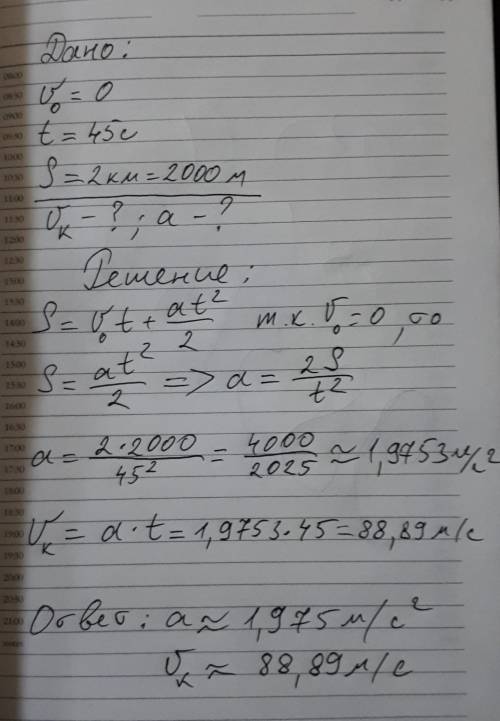 Дано:
υ₀ = 0
t = 45с
S = 2км = 2000м
υₖ - ? ; a - ?
Решение:
S = υ₀t + at²/2 т.к. υ₀ = 0, то
S = at²/2 => a = 2S/t²
a = 2·2000/45² = 4000/2025 ≈ 1,9753м/с²
υₖ = a·t = 1,9753·45 = 88,89м/с
Ответ: a ≈ 1,975м/с²
υₖ ≈ 88,89м/с